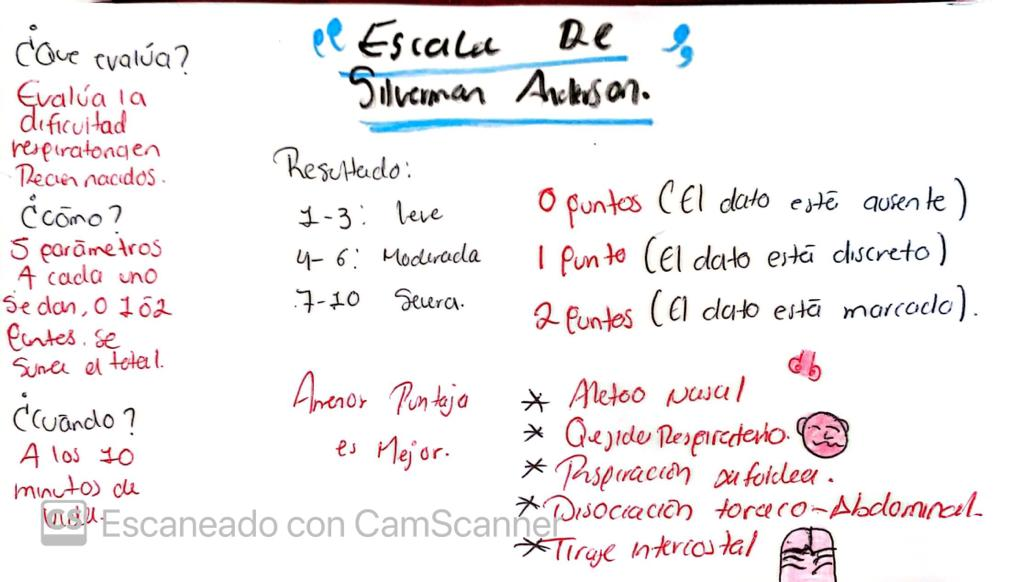 "Escala De
Silverman Anderson.
¿Que evalúa?
Evalúa la
dificultad
respiratoria en
Recien nacidos.
¿cómo?
5 parámetros
A cada uno
se dan, 0 1 ó 2
Puntos. se
suma el total.
¿Cuándo?
A los 10
minutos de
Resultado:
1-3: leve
4-6: Moderada
7-10 Severa.
A menor Puntaje
es Mejor.
0 puntos (El dato está ausente)
1 Punto (El dato está discreto)
2 Puntos (El dato está marcado).
* Aleteo Nasal
* Quejido Respiratorio.
* Respiración
* Disociación toraco-Abdominal
* Tiraje intercostal
CS Escaneado con CamScanner